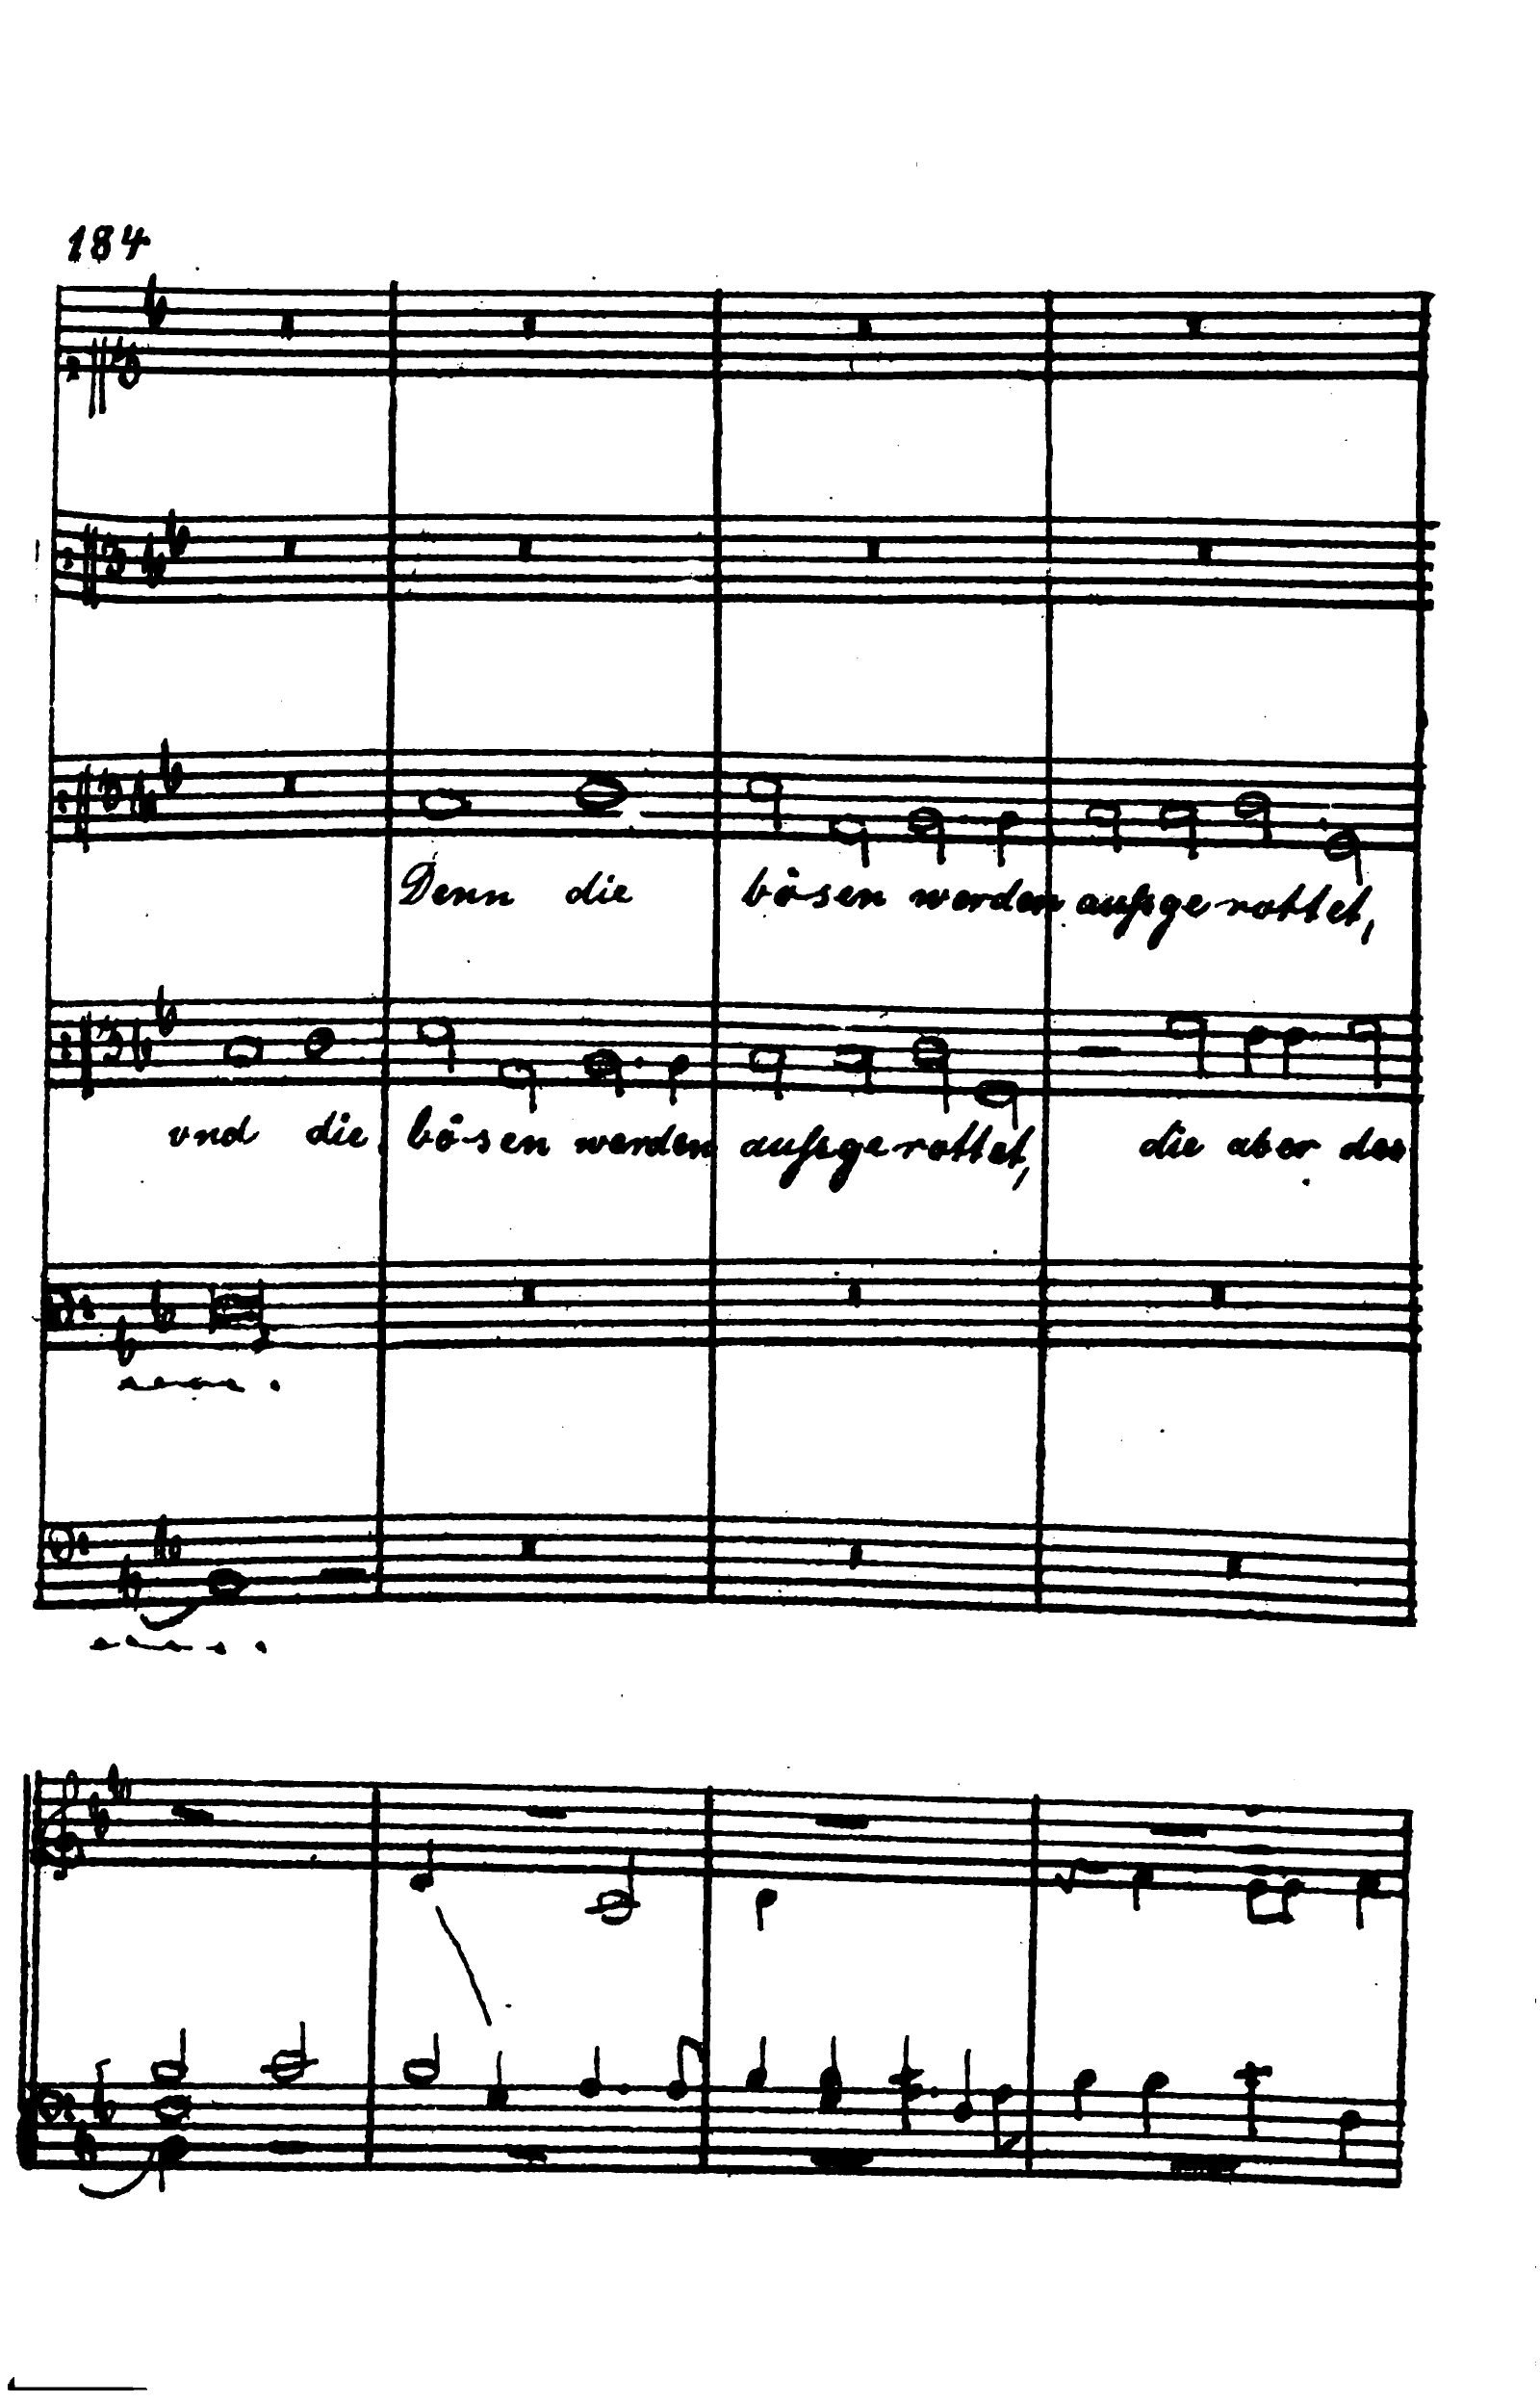 184
Denn die bösen werden außgerottet,
vnd die bösen werden außgerottet, die aber des